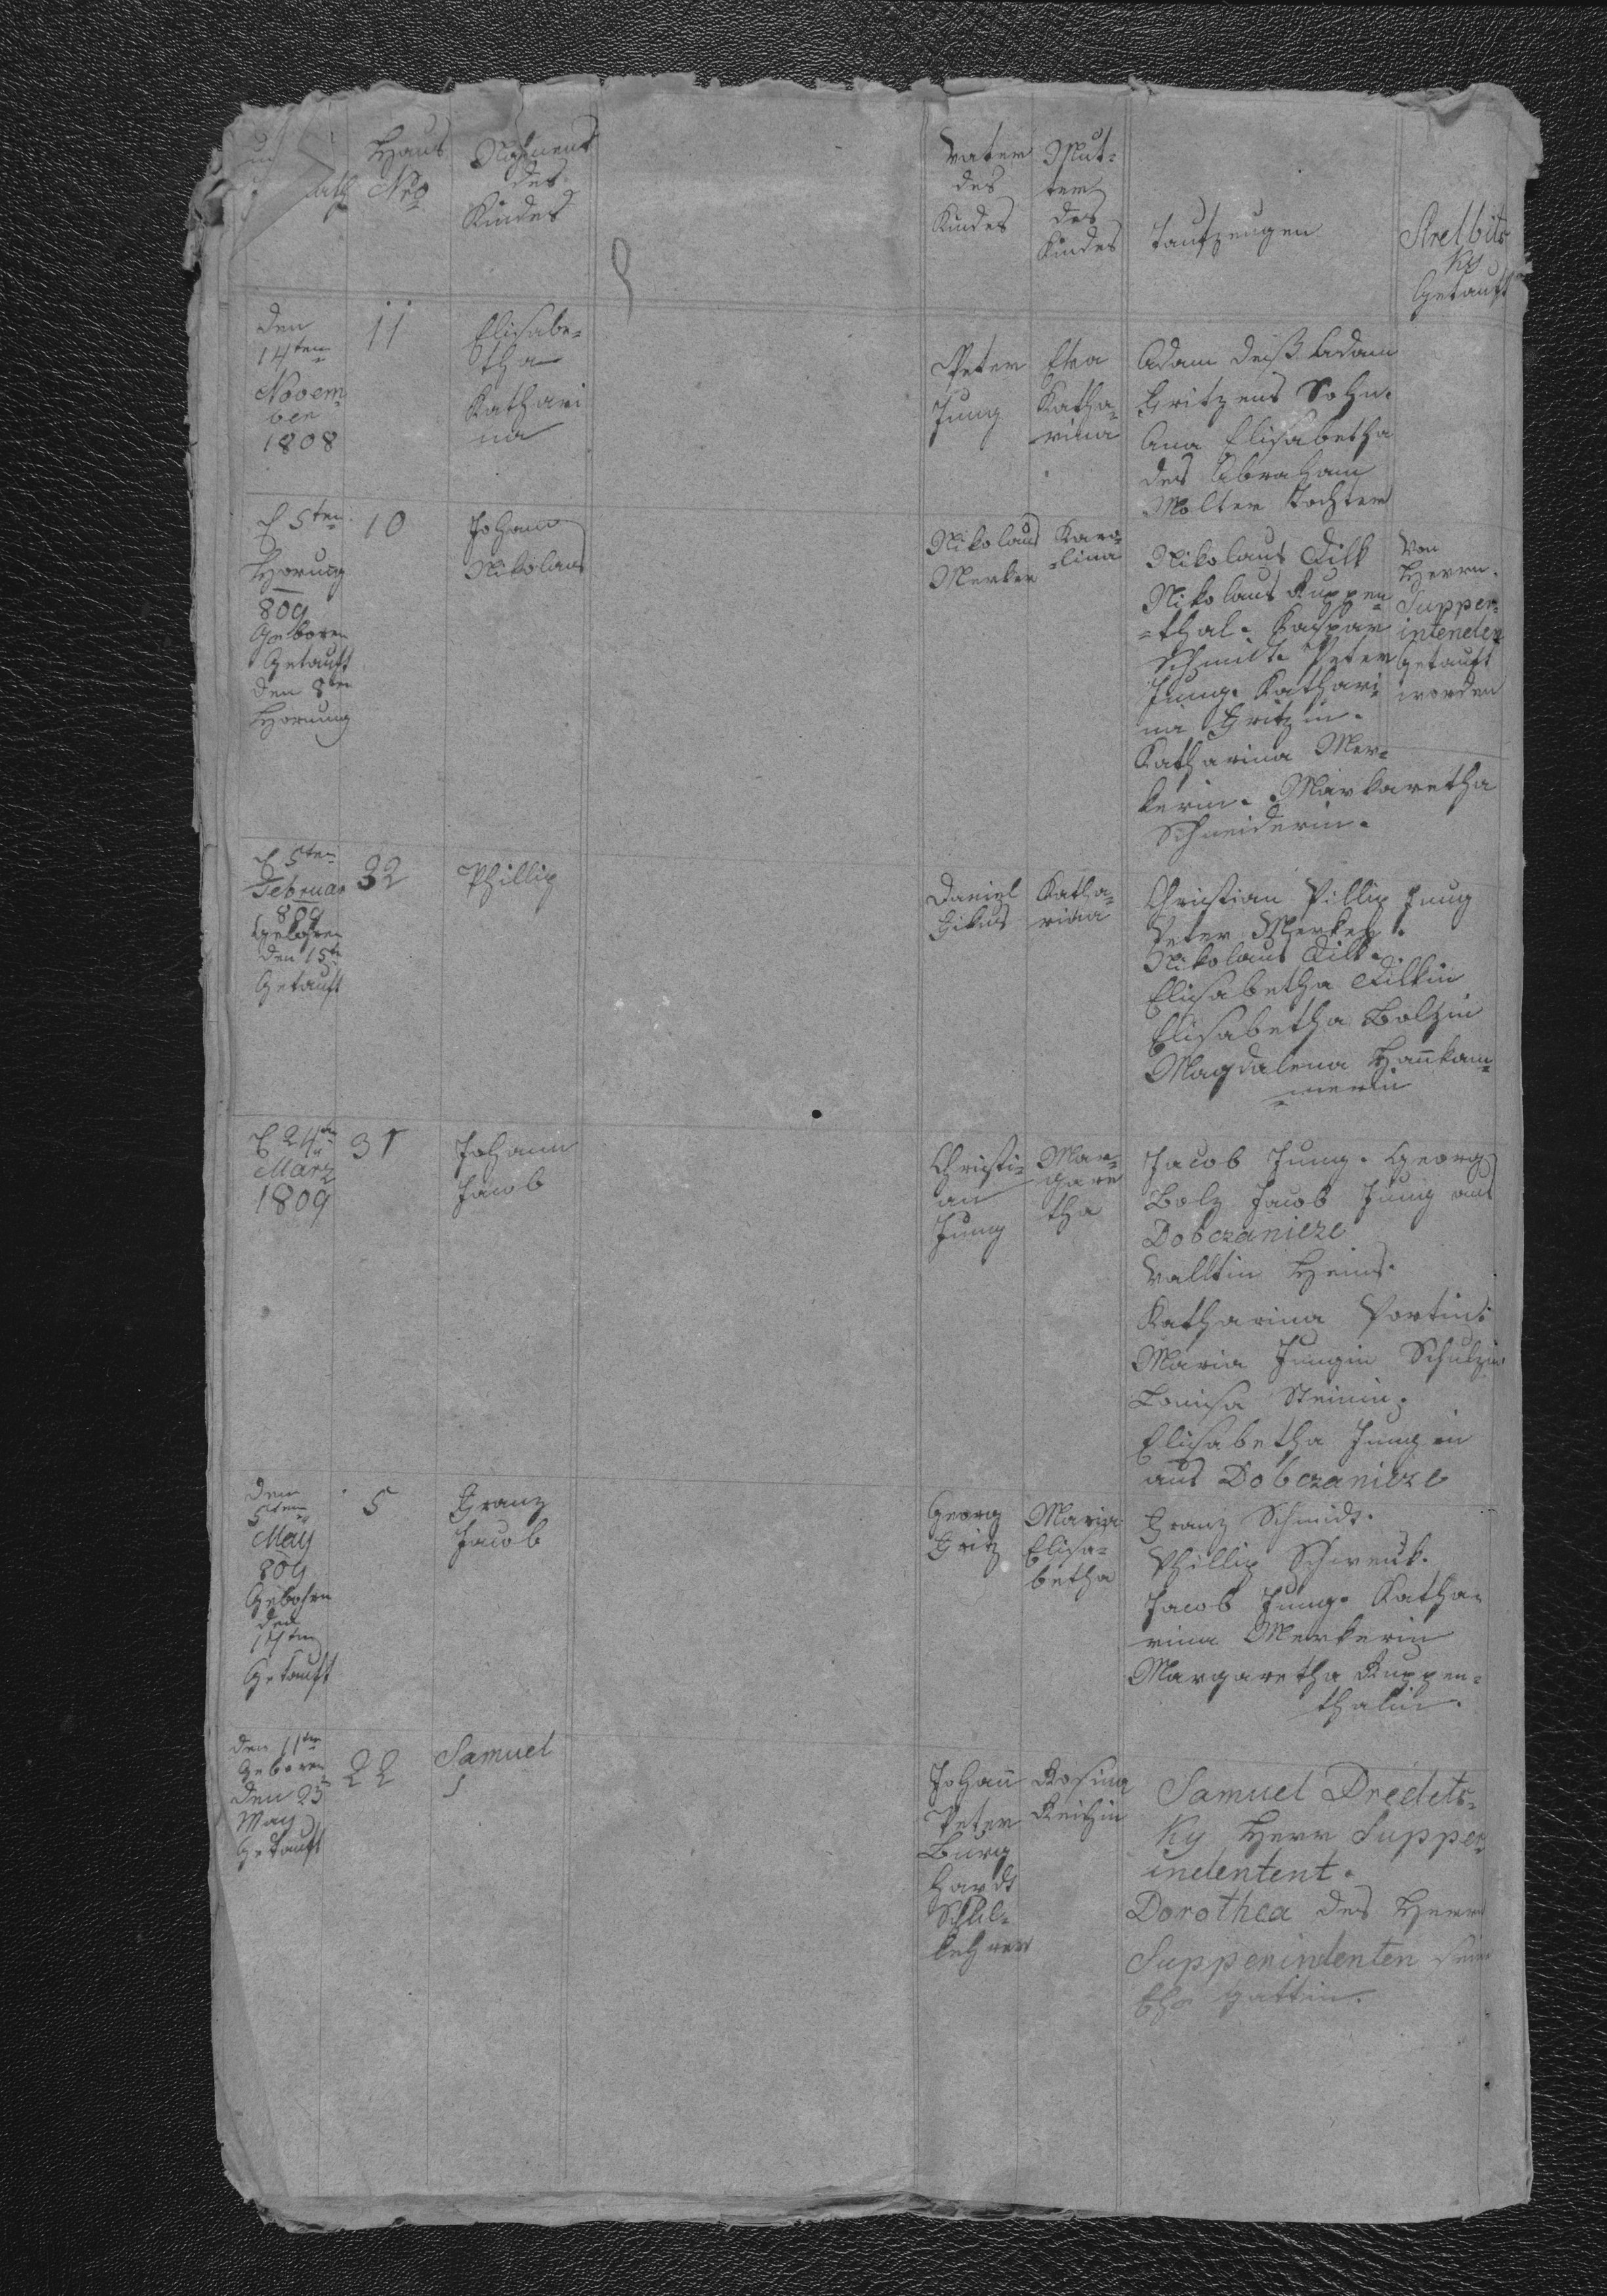 Haus
Nro
Nahmens
des
Kindes
Vater
des
Kindes
Mut-
ter
des
Kindes
Taufzeugen
Getauft
den
14ten
Novem-
ber
1808
11
Elisabe-
tha
Kathari
na
Peter
Jung
Eva
Katha-
rina
Adam Deiß Adam
Fritzens Sohn.
Ana Elisabetha
des Abraham
Molter Tochter
5ten
Hornug
809
Geboren
Getauft
den 8ten
Hornung
10
Johann
Nikolaus
Nikolaus
Merker
Karo-
-lina
Nikolaus Dilk
Nikolaus Ruppen
-thal. Kaspar
Schmidt. Peter
Jung. Kathari-
na Fritzin.
Katharina Mer-
kerin. Markaretha
Schneiderin.
Von
Herrn
Supper-
intenden
getauft
worden
5ten
Februar
809
Gebohren
den 15te
Getauft
32
Phillip
Daniel
Filus
Katha-
rina
Christian Pillip Jung
Peter Merker.
Nikolaus Dilk.
Elisabetha Dilkin
Elisabetha Bolzin
Magdalena Hankam-
-merin
24ten
März
1809
31
Johann
Jacob
Christi-
an
Jung
Mar-
gare
tha
Jacob Jung. Georg
Bolz Jacob Jung aus
Dobczanieze
Valltin Heins.
Katharina Portin.
Maria Jungin Schulzin
Louisa Steinin.
Elisabetha Jungin
aus Dobczanieze
den
5ten
May
809
Gebohrn
den
11ten
Getauft
5
Franz
Jacob
Georg
Fritz
Maria
Elisa-
betha
Franz Schmidt.
Phillip Schwenk.
Jacob Jung. Katha-
rina Merkerin
Margaretha Ruppen-
thalin.
den 11ten
Geboren
den 25
May
Getauft
22
Samuel
Johann
Peter
Burg
hardt
Schul-
lehrer
Rosina
Reichin
Samuel Dredets-
ky Herr Supper
indentent.
Dorothea des Herrn
Supperindenten
Ehe Gattin.